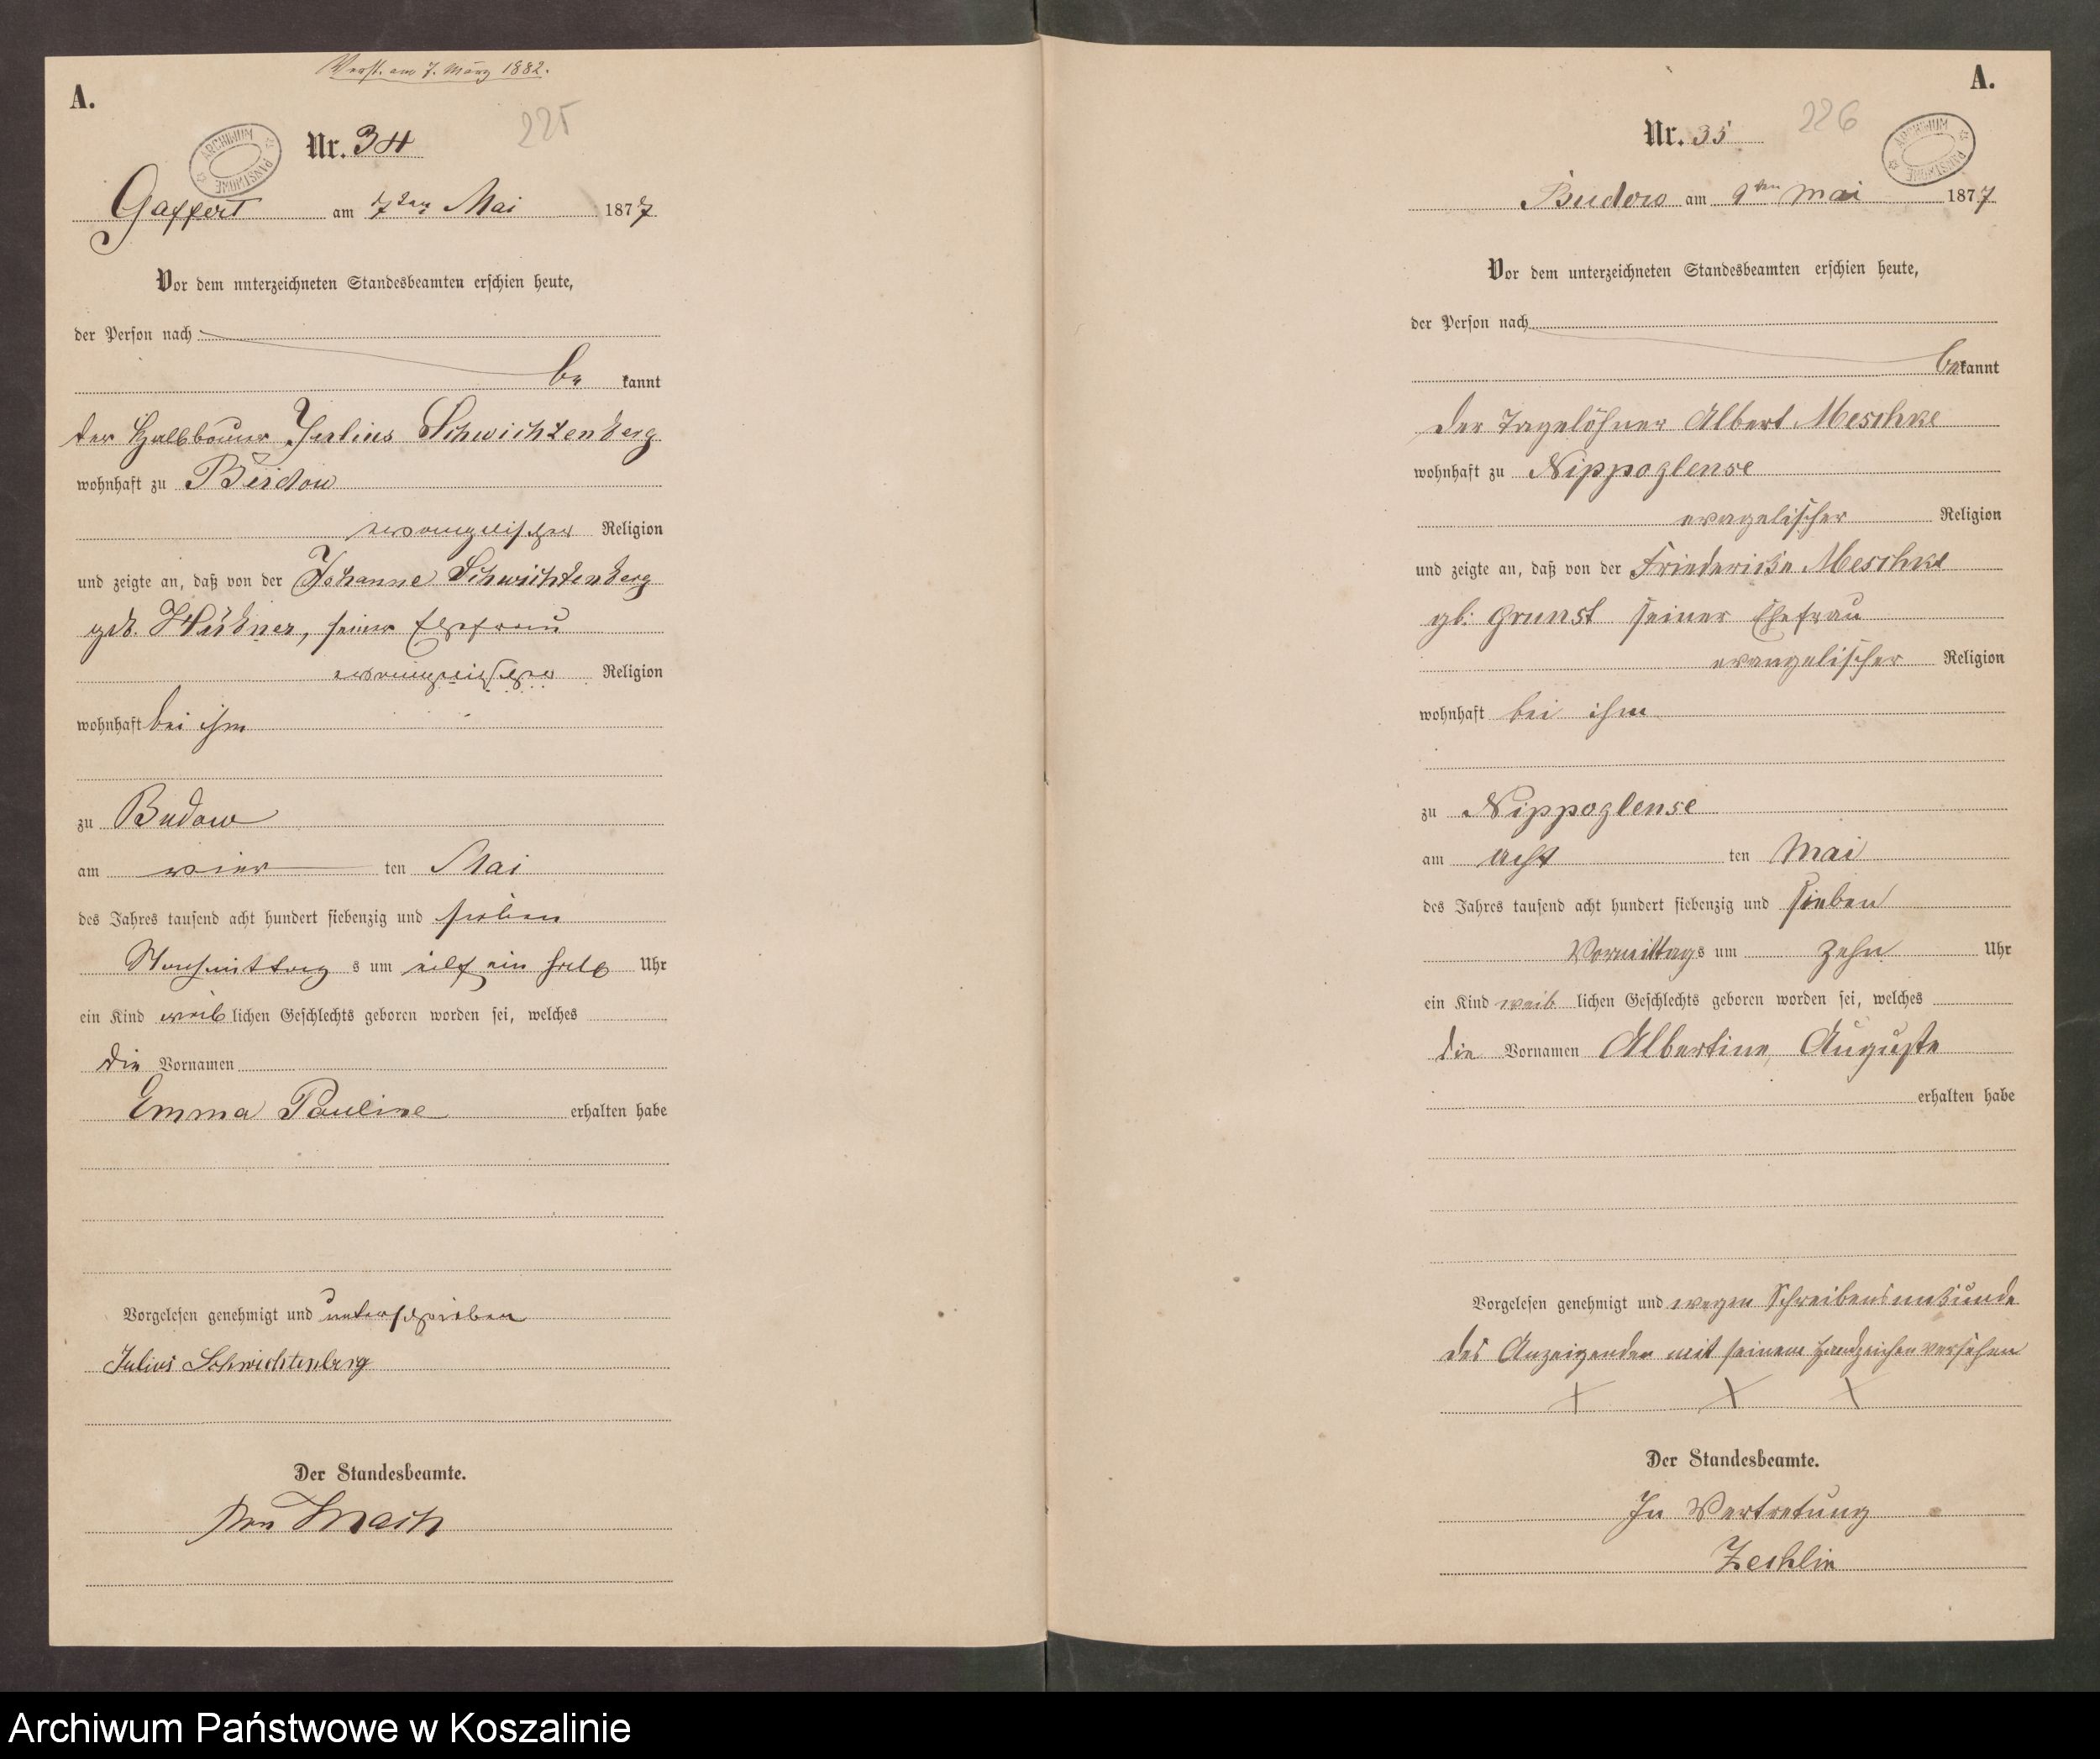 Verst. am 7. März 1882.
A.
225
Nr. 34
ARCHIWUM PAŃSTWOWE
Gaffert am 7ten Mai 1877
Vor dem unterzeichneten Standesbeamten erschien heute,
der Person nach
be kannt
der Halbbauer Julius Schwichtenberg
wohnhaft zu Budow
evangelischer Religion
und zeigte an, daß von der Johanne Schwichtenberg
geb. Hübner, seiner Ehefrau
evangelischer Religion
wohnhaft bei ihm
zu Budow
am vier ten Mai
des Jahres tausend acht hundert siebenzig und sieben
Nachmittag s um elf ein halb Uhr
ein Kind weib lichen Geschlechts geboren worden sei, welches
die Vornamen
Emma Pauline erhalten habe
Vorgelesen genehmigt und unterschrieben
Julius Schwichtenberg
Der Standesbeamte.
von Mach
A.
226
Nr. 35
ARCHIWUM PAŃSTWOWE
Budow am 9ten Mai 1877
Vor dem unterzeichneten Standesbeamten erschien heute,
der Person nach
be kannt
der Tagelöhner Albert Meschke
wohnhaft zu Nippoglense
evagelischer Religion
und zeigte an, daß von der Friederike Meschke
gb. Grunst seiner Ehefrau
evangelischer Religion
wohnhaft bei ihm
zu Nippoglense
am acht ten Mai
des Jahres tausend acht hundert siebenzig und sieben
Vormittags um zehn Uhr
ein Kind weib lichen Geschlechts geboren worden sei, welches
die Vornamen Albertine, Auguste
erhalten habe
Vorgelesen genehmigt und wegen Schreibensunkunde
des Anzeigenden mit seinem Handzeichen versehen
X X X
Der Standesbeamte.
In Vertretung
Zechlin
Archiwum Państwowe w Koszalinie